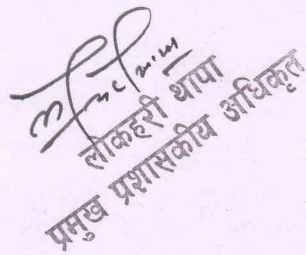 लोकहरी थापा
प्रमुख प्रशासकीय अधिकृत